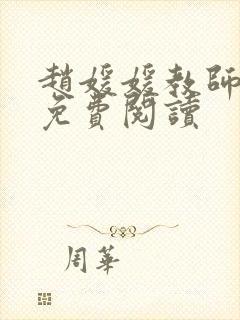 趙媛媛教師
免費閱讀
周華